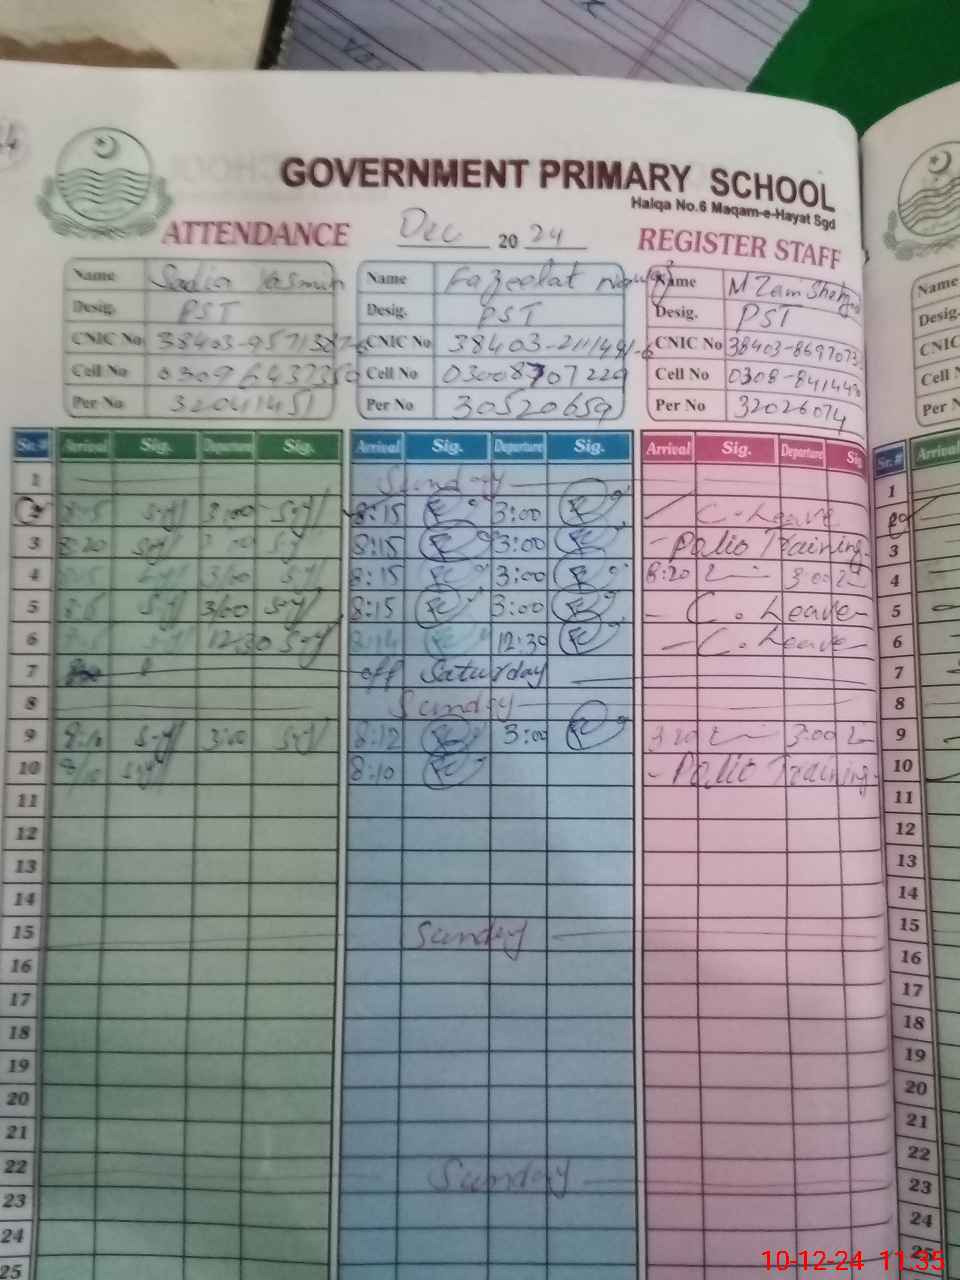 GOVERNMENT PRIMARY SCHOOL
Halqa No.6 Maqam-e-Hayat Sgd
ATTENDANCE Dec 2024 REGISTER STAFF
Name Sadia Yasmin Name Fazeelat Name M Zam Name
Desig. PST Desig. PST Desig. PST Desig.
CNIC No 38403- CNIC No 38403- CNIC No 38403- CNIC
Cell No Cell No Cell No 0308- Cell N
Per No 32041451 Per No 30520659 Per No 32026074 Per N
Sr.# Arrival Sig. Departure Sig. Arrival Sig. Departure Sig. Arrival Sig. Departure Sig Sr.# Arrival
1 Sunday 1
2 3:00 8:15 3:00 C. Leave
3 8:20 8:15 3:00 Polio Training 3
4 3/00 8:15 3:00 8:20 3:00 4
5 3/00 8:15 3:00 C. Leave 5
6 12:30 8:14 12:30 C. Leave 6
7 off Saturday 7
8 Sunday 8
9 8:10 3:00 8:12 3:00 3:00 9
10 8/10 8:10 Polio Training 10
11 11
12 12
13 13
14 14
15 Sunday 15
16 16
17 17
18 18
19 19
20 20
21 21
22 Sunday 22
23 23
24 24
25 25
10-12-24 11:35